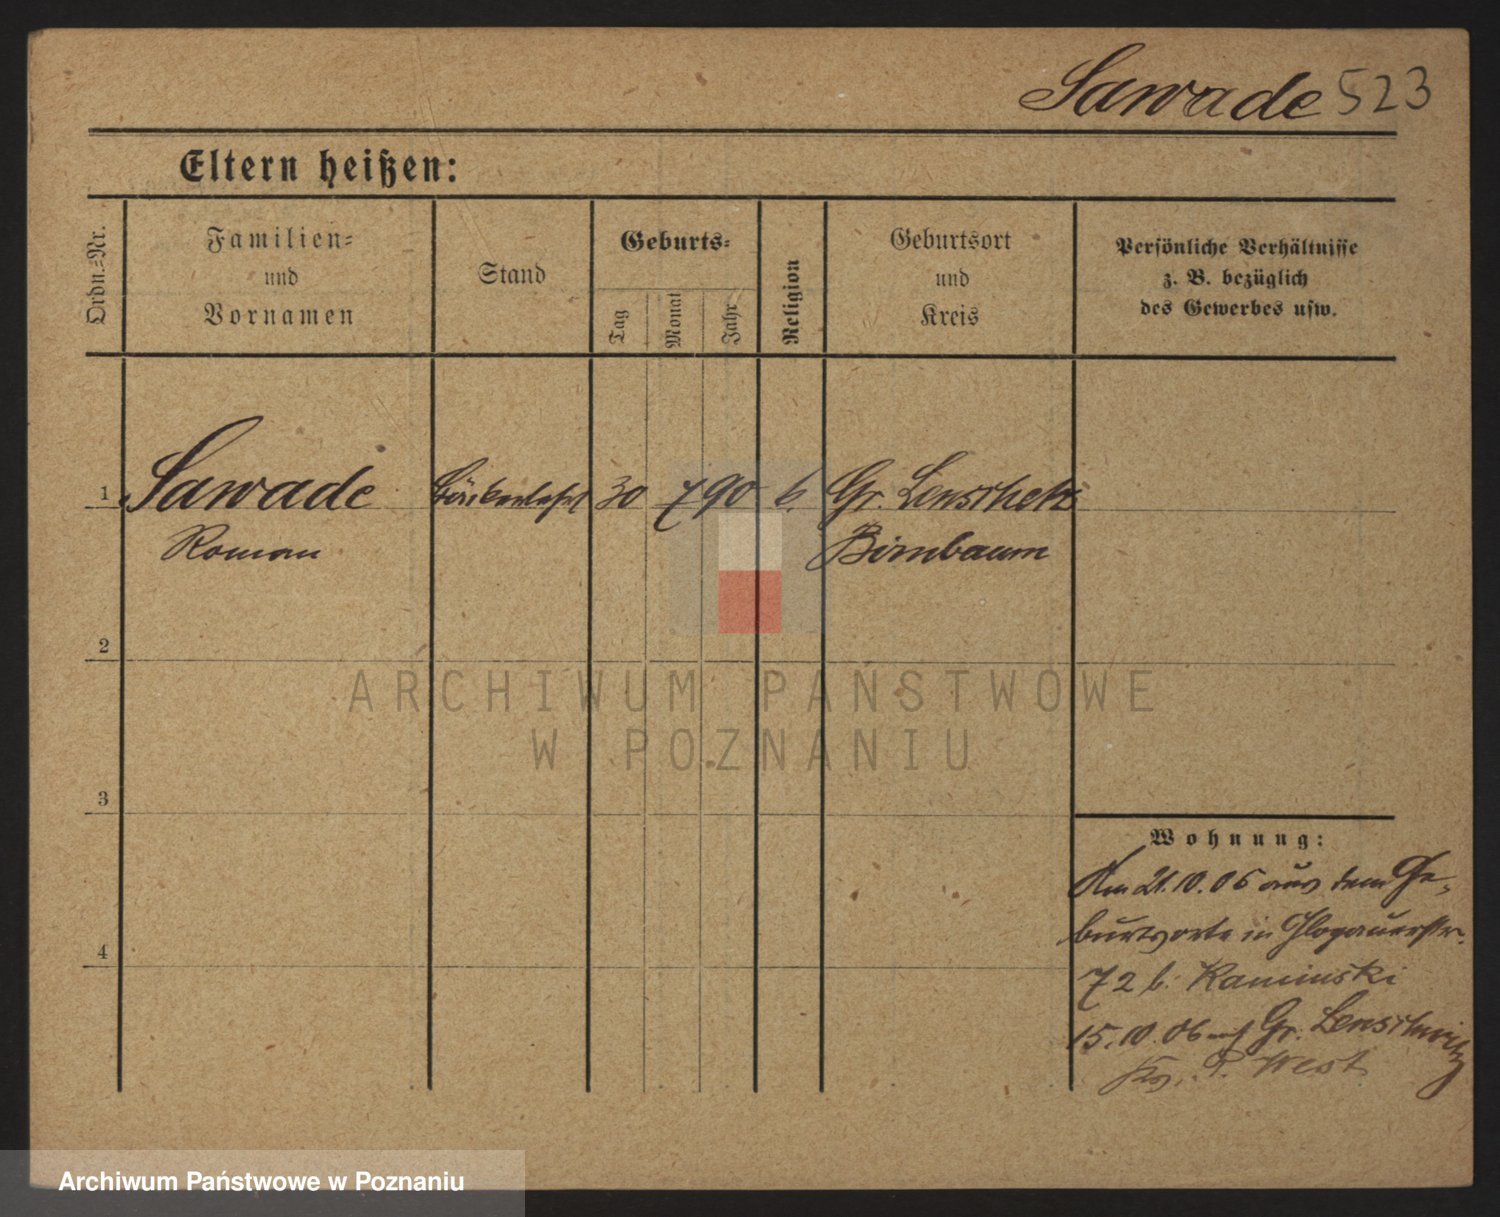 Sawade 523
Eltern heißen:
Ordn.=Nr.
Familien=
und
Vornamen
Stand
Geburts=
Tag
Monat
Jahr
Religion
Geburtsort
und
Kreis
Persönliche Verhältnisse
z. B. bezüglich
des Gewerbes usw.
1 Sawade 30 7 90 Gr.
Roman Birnbaum
2
ARCHIWUM PAŃSTWOWE
W POZNANIU
3
Wohnung:
Am 21.10.05 aus dem Ge-
burtsorte in Glogauerstr.
72 b. Kaminski
15.10.06 auf Gr.
4
P. West
Archiwum Państwowe w Poznaniu